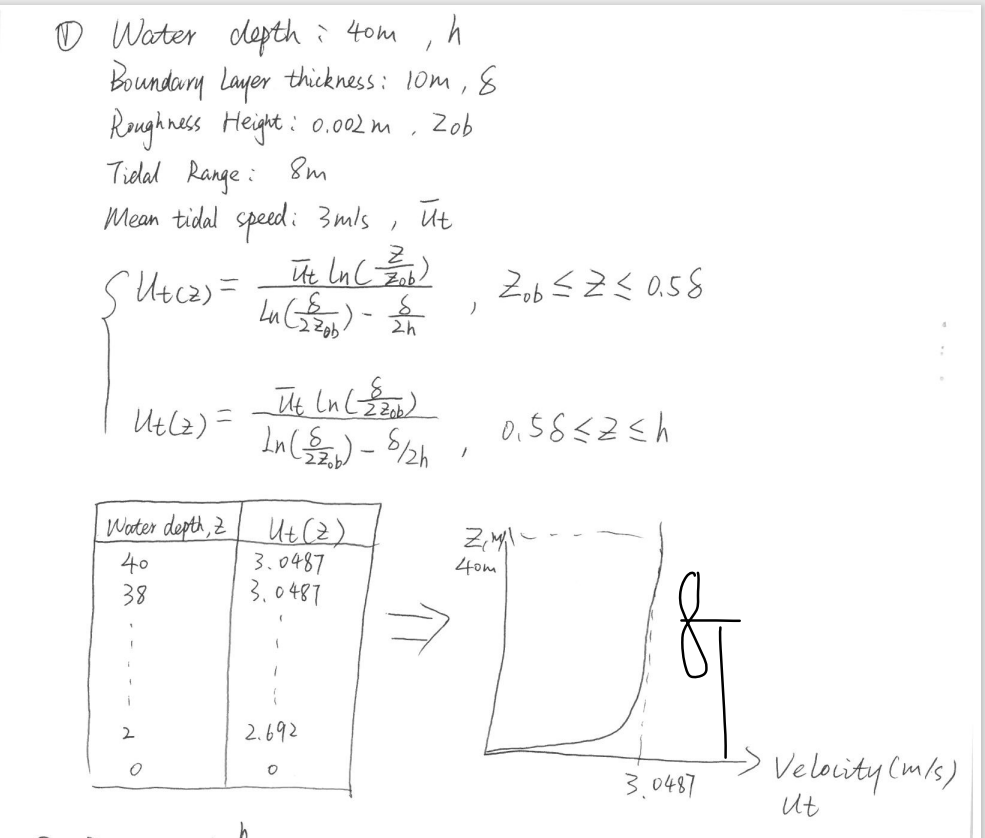 ① Water depth : 40m , h
Boundary Layer thickness: 10m , δ
Roughness Height : 0.002m , Zob
Tidal Range : 8m
Mean tidal speed : 3m/s , Ūt
{ Ut(z) = Ūt ln(z/Zob) / (Ln(δ/2Zob) - δ/2h) , Zob ≤ Z ≤ 0.5δ
Ut(z) = Ūt ln(δ/2Zob) / (ln(δ/2Zob) - δ/2h) , 0.5δ ≤ Z ≤ h
Water depth, z Ut(z)
40 3.0487
38 3.0487
2 2.692
0 0
⇒
Z, m
40m
3.0487
Velocity (m/s)
Ut
h